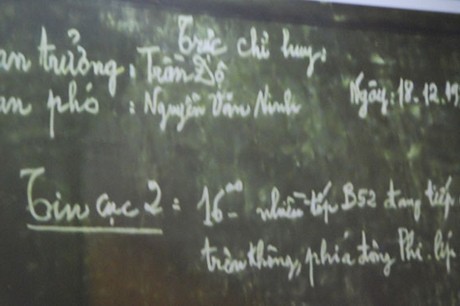 Trực chỉ huy:
an trưởng: Trần Độ
an phó : Nguyễn Văn Ninh Ngày: 18.12.19
Tin cục 2: 16⁰⁰ nhiều tốp B52 đang tiếp
trên không, phía đông Phi-líp